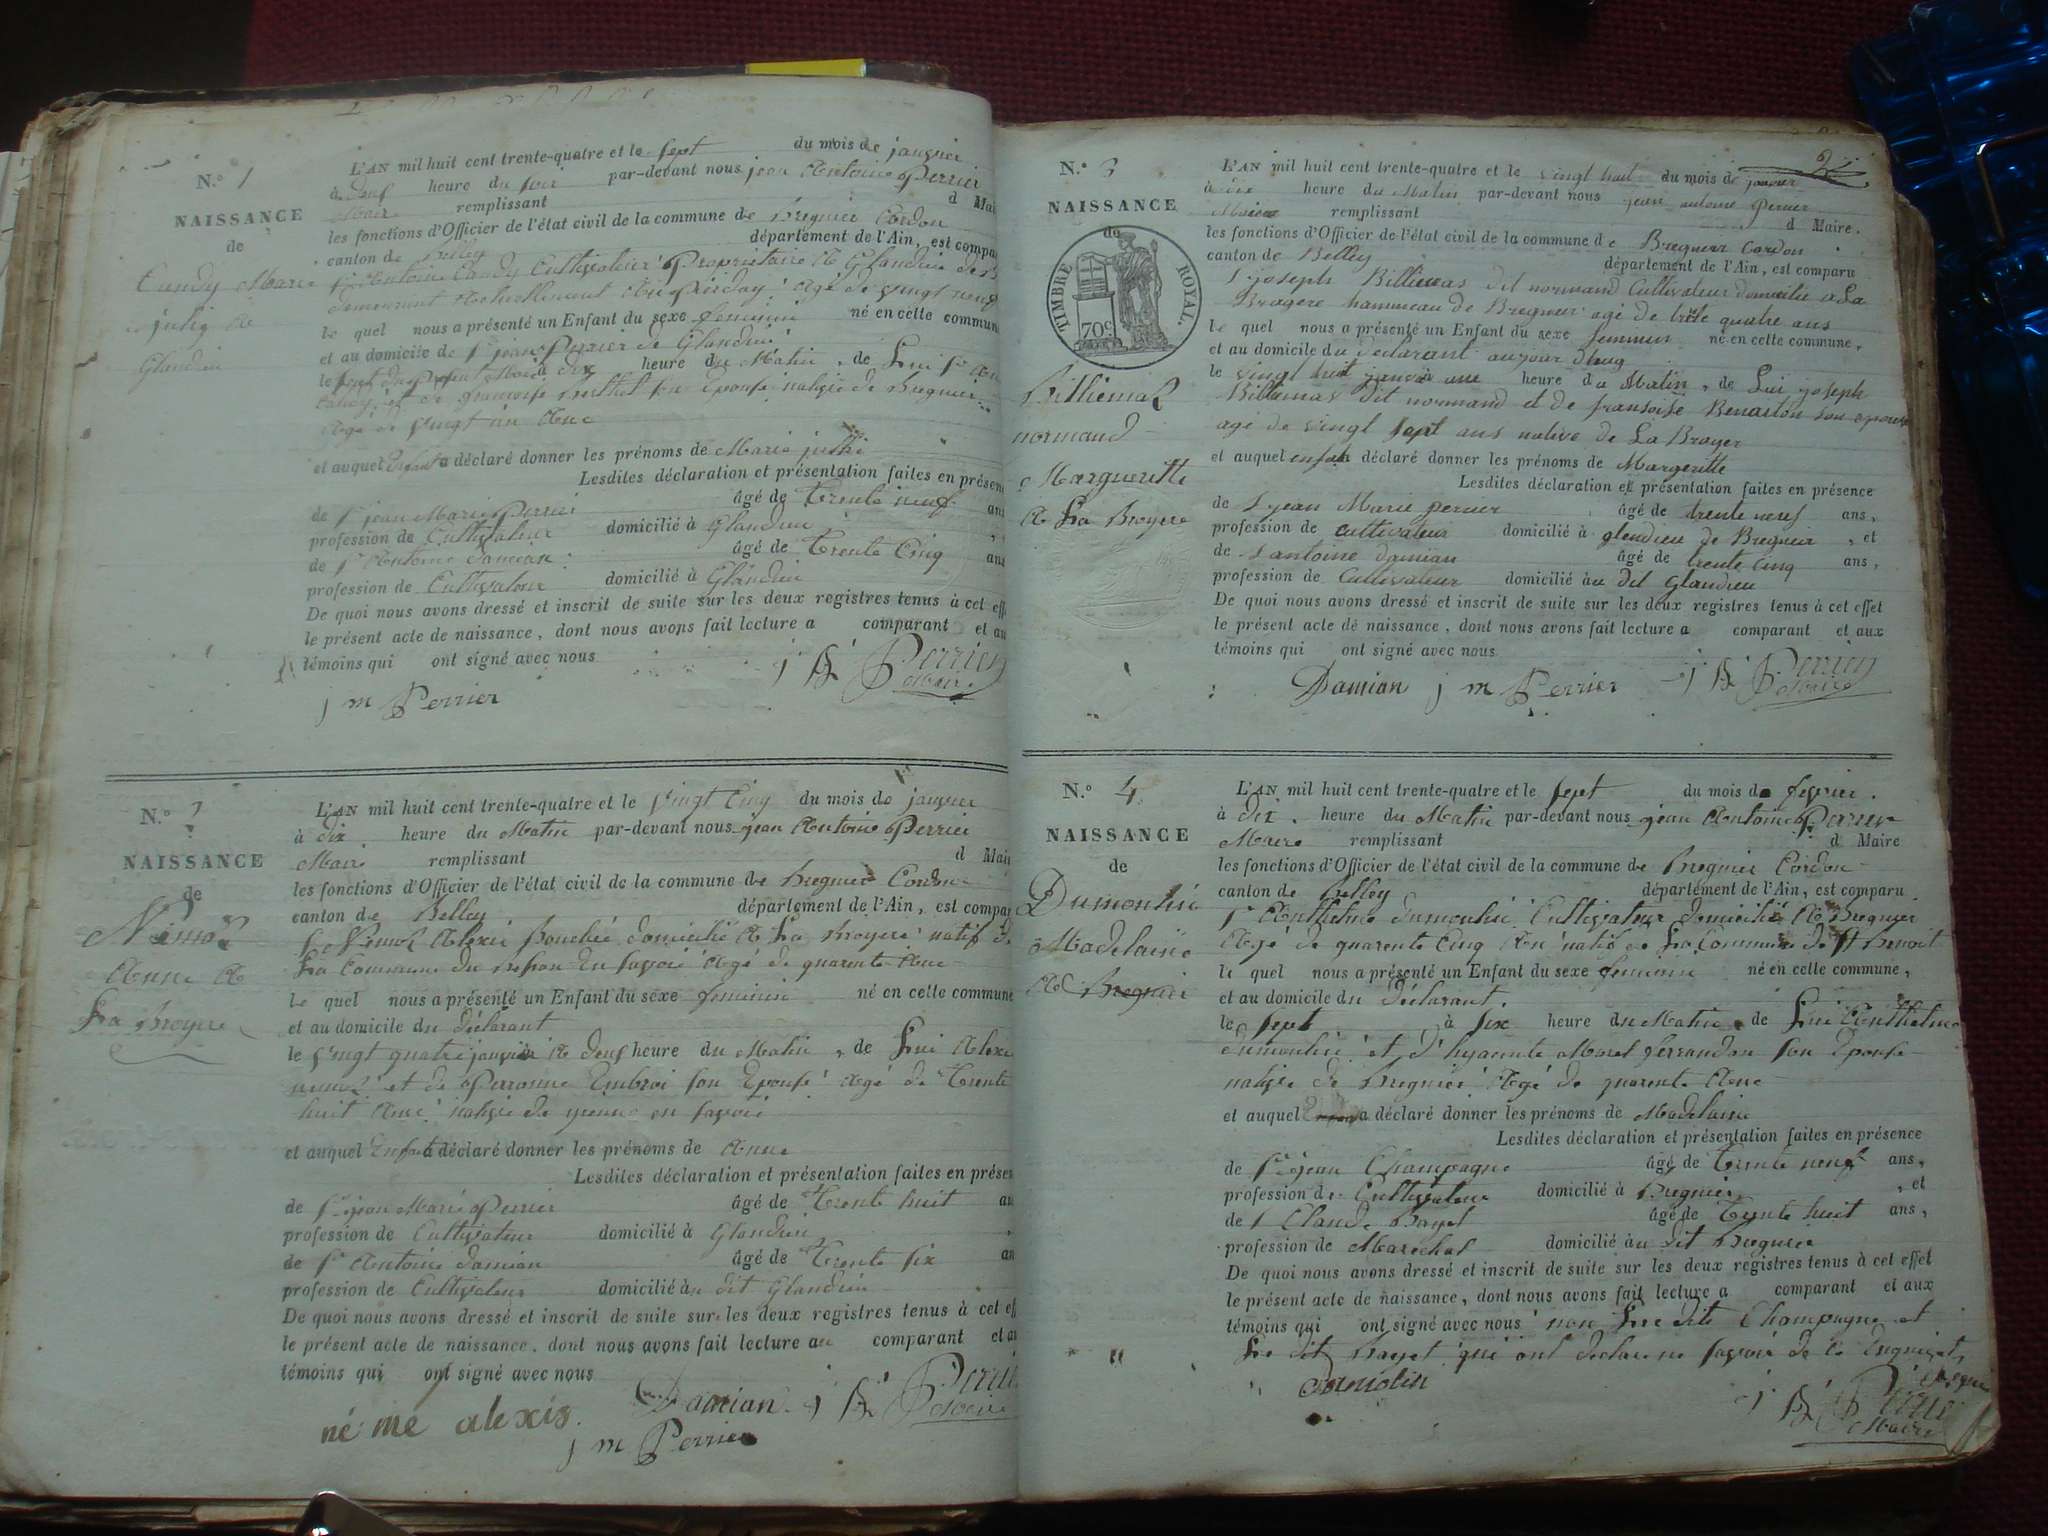 N.º 1
NAISSANCE
de
Candy Marie
julie de
Glandieu
L'AN mil huit cent trente-quatre et le sept du mois de janvier
à heure du soir par-devant nous jean Antoine Perrier
Maire remplissant d Mai
les fonctions d'Officier de l'état civil de la commune de Bregnier Cordon
canton de Belley département de l'Ain, est compa
Sr Antoine Candy Cultivateur Propriétaire de Glandieu
demeurant Actuellement âgé de vingt neuf
le quel nous a présenté un Enfant du sexe féminin né en cette commun
et au domicile de Sr jean Perrier de Glandieu
le sept du présent Mois à dix heure du Matin, de Lui Sr An
Candy et de françoise son épouse native de Bregnier
âgé de vingt un Ans
et auquel Enfant a déclaré donner les prénoms de Marie julie
Lesdites déclaration et présentation faites en présen
de Sr jean Marie Perrier âgé de Trente neuf ans
profession de Cultivateur domicilié à Glandieu
de Sr Antoine Damian âgé de Trente Cinq ans
profession de Cultivateur domicilié à Glandieu
De quoi nous avons dressé et inscrit de suite sur les deux registres tenus à cet eff
le présent acte de naissance, dont nous avons fait lecture a comparant et au
témoins qui ont signé avec nous
j A Perrier
Maire
j m Perrier
N.º 2
NAISSANCE
de
Némoz
Anne de
La Broyere
L'AN mil huit cent trente-quatre et le vingt Cinq du mois de janvier
à dix heure du Matin par-devant nous jean Antoine Perrier
Maire remplissant d Mair
les fonctions d'Officier de l'état civil de la commune de Bregnier Cordon
canton de Belley département de l'Ain, est compar
Sr Némoz Alexis domicilié à La Broyere natif de
La Commune du en savoie âgé de quarente Ans
le quel nous a présenté un Enfant du sexe féminin né en cette commune
et au domicile du déclarant
le vingt quatre janvier à deuf heure du Matin, de Lui Alexi
nemoz et de Perronne son Epouse âgé de Trente
huit Ans native de yenne en savoie
et auquel Enfant a déclaré donner les prénoms de Anne
Lesdites déclaration et présentation faites en présen
de Sr jean Marie Perrier âgé de Trente huit an
profession de Cultivateur domicilié à Glandieu
de Sr Antoine Damian âgé de Trente six an
profession de Cultivateur domicilié au dit Glandieu
De quoi nous avons dressé et inscrit de suite sur les deux registres tenus à cet eff
le présent acte de naissance, dont nous avons fait lecture au comparant et au
témoins qui ont signé avec nous
né me alexis. Damian j A Perrier
Maire
j m Perrier
2
N.º 3
NAISSANCE
de
TIMBRE ROYAL.
70c
Billiemaz
normand
Margueritte
de La Broyere
L'AN mil huit cent trente-quatre et le vingt huit du mois de janvier
à dix heure du Matin par-devant nous jean antoine perrier
Maire remplissant d Maire.
les fonctions d'Officier de l'état civil de la commune de Bregnier Cordon
canton de Belley département de l'Ain, est comparu
S joseph Billiemas dit normand Cultivateur domicilié a La
Brayere hammeau de Bregnier agé de trente quatre ans
le quel nous a présenté un Enfant du sexe feminin né en cette commune,
et au domicile du declarant aujourdhuy
le vingt huit janvier a une heure du Matin, de Lui joseph
Billiemas dit normand et de fransoise son epouse
agé de vingt sept ans native de La Brayer
et auquel enfan déclaré donner les prénoms de Margeritte
Lesdites déclaration et présentation faites en présence
de S jean Marie perrier âgé de trente neuf ans,
profession de cultivateur domicilié à glendieu de Bregnier, et
de S antoine damian âgé de trente Cinq ans,
profession de Cultivateur domicilié au dit Glandieu
De quoi nous avons dressé et inscrit de suite sur les deux registres tenus à cet effet
le présent acte de naissance, dont nous avons fait lecture a comparant et aux
témoins qui ont signé avec nous
Damian j m Perrier j A Perrier
Maire
N.º 4
NAISSANCE
de
Dumoulin
Madelaine
de Bregnier
L'AN mil huit cent trente-quatre et le sept du mois de fevrier.
à dix. heure du Matin par-devant nous jean Antoine Perrier
Maire remplissant d Maire
les fonctions d'Officier de l'état civil de la commune de Bregnier Cordon
canton de Belley département de l'Ain, est comparu
Sr Anthelme dumoulin Cultivateur domicilié à Bregnier
Agé de quarente Cinq Ans natif de La Commune de St Benoit
le quel nous a présenté un Enfant du sexe féminin né en cette commune,
et au domicile du déclarant.
le sept à six heure du Matin, de Lui Anthelme
dumoulin et d'hyacinte Morel ferrandon son Epouse
native de Bregnier Agé de quarente Ans
et auquel a déclaré donner les prénoms de Madelaine
Lesdites déclaration et présentation faites en présence
de Sr jean Champagne âgé de Trente neuf ans,
profession de Cultivateur domicilié à Bregnier, et
de S Claude Bayet âgé de Trente huit ans,
profession de Marechal domicilié au dit Bregnier
De quoi nous avons dressé et inscrit de suite sur les deux registres tenus à cet effet
le présent acte de naissance, dont nous avons fait lecture a comparant et aux
témoins qui ont signé avec nous non Les dits Champagne et
Le dit Bayet qui ont declaré ne savoir de ce Enquis
dumolin j A Perrier
Maire